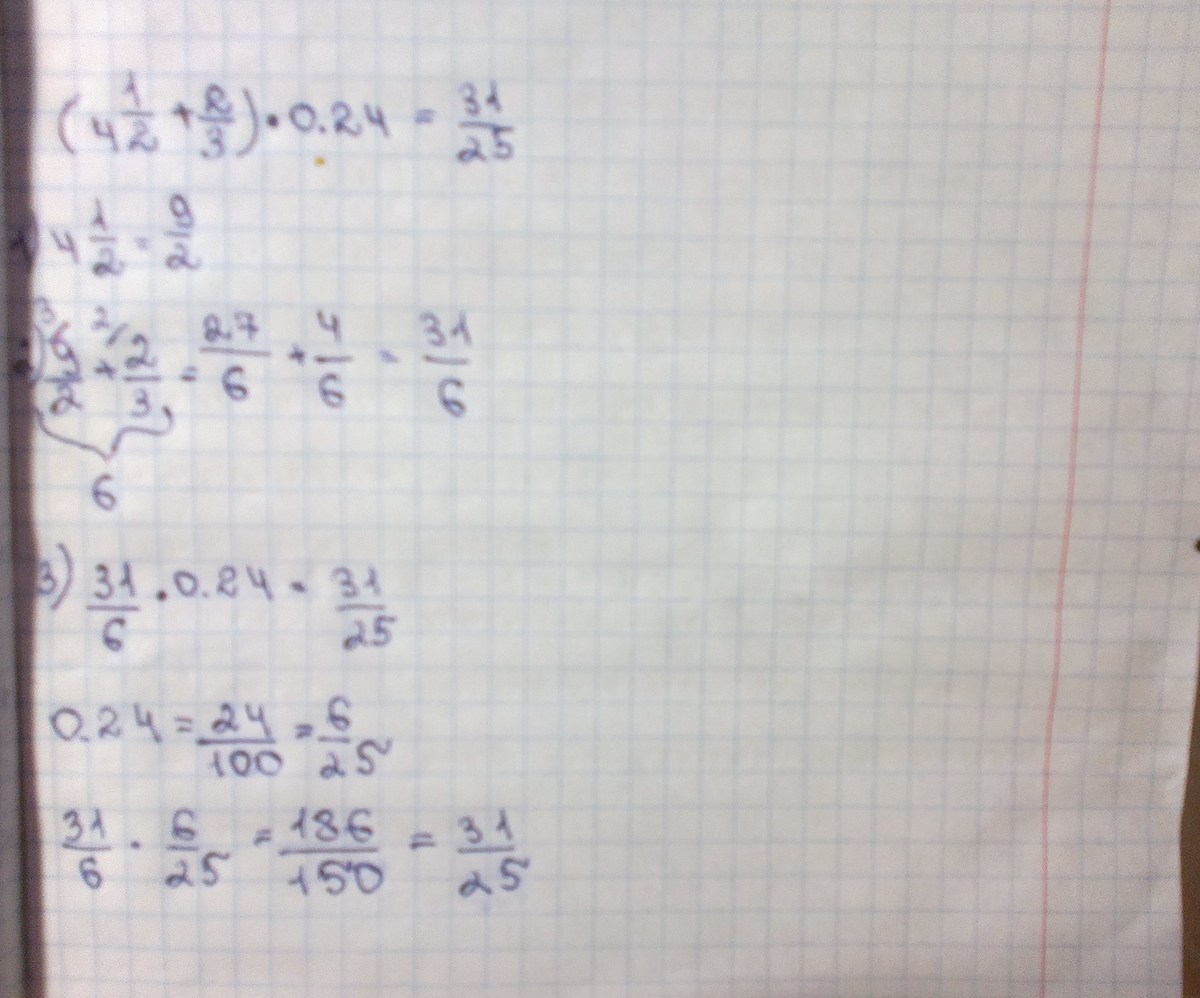 (4 1/2 + 2/3) · 0.24 = 31/25
4 1/2 = 9/2
9/2 + 2/3 = 27/6 + 4/6 = 31/6
6
3) 31/6 · 0.24 = 31/25
0.24 = 24/100 = 6/25
31/6 · 6/25 = 186/150 = 31/25